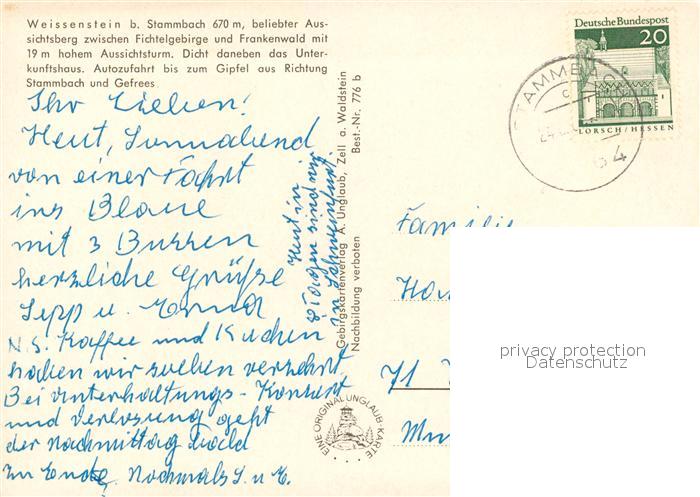 Weissenstein b. Stammbach 670 m, beliebter Aus-
sichtsberg zwischen Fichtelgebirge und Frankenwald mit
19 m hohem Aussichtsturm. Dicht daneben das Unter-
kunftshaus. Autozufahrt bis zum Gipfel aus Richtung
Stammbach und Gefrees
Ihr Lieben!
Heut, Sonnabend
von einer Fahrt
ins Blaue
mit 3 Bussen
herzliche Grüße
Sepp u. Erna
N.S. Kaffee und Kuchen
haben wir soeben verzehrt
Bei Unterhaltungs-Konzert
und Verlosung geht
der Nachmittag bald
zu Ende, Nochmals S. u. E.
Heut in
8 Tagen sind wir
in Schweinfurt.
Gebirgskartenverlag A. Unglaub, Zell a. Waldstein
Nachbildung verboten Best.-Nr. 776 b
EINE ORIGINAL UNGLAUB-KARTE
Deutsche Bundespost
20
LORSCH/HESSEN
STAMMBACH
Familie
privacy protection
Datenschutz